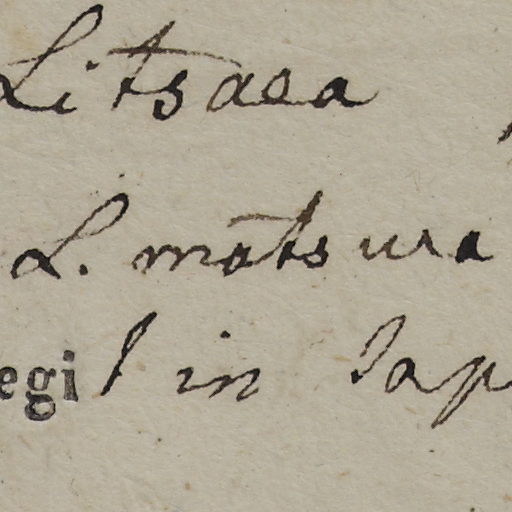 Litsaea
L. matsura
egi in Jap